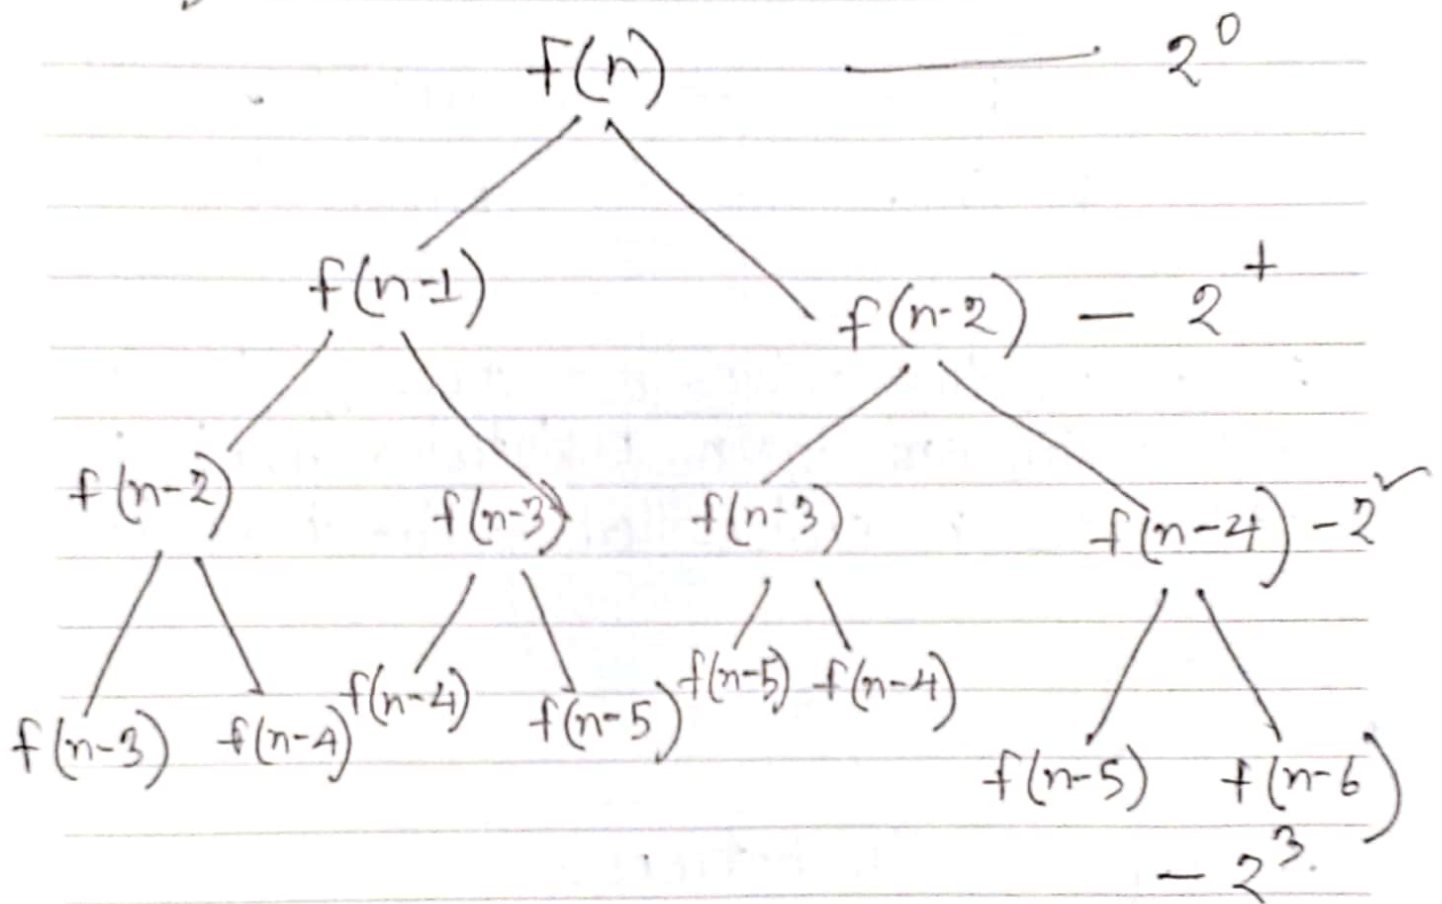 f(n) — 2⁰
f(n-1) f(n-2) — 2¹
f(n-2) f(n-3) f(n-3) f(n-4) - 2²
f(n-3) f(n-4) f(n-4) f(n-5) f(n-5) f(n-4) f(n-5) f(n-6)
- 2³